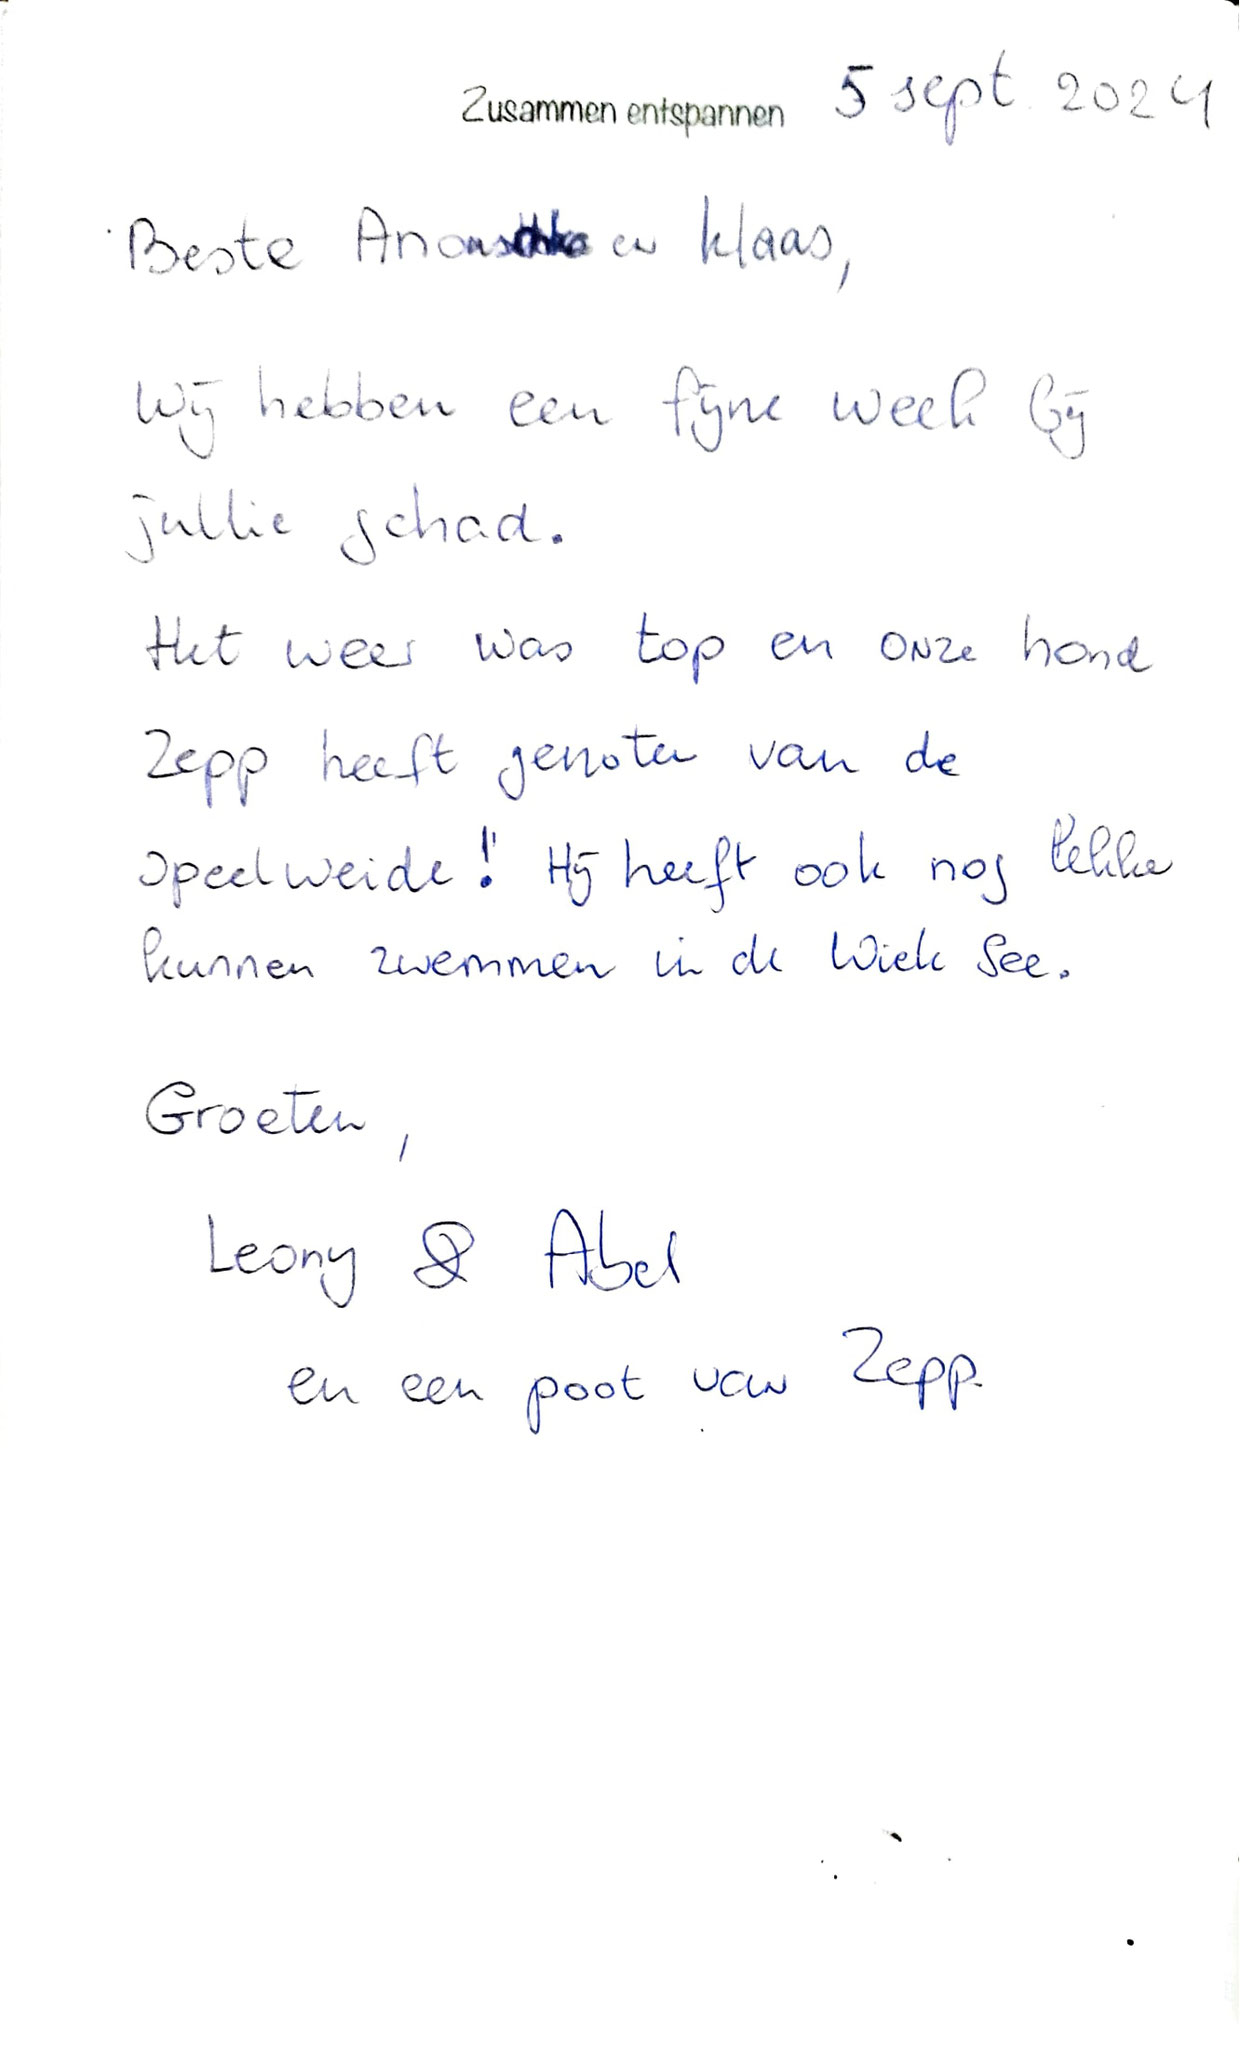 Zusammen entspannen 5 sept. 2024
Beste en Klaas,
Wij hebben een fijne week bij
jullie gehad.
Het weer was top en onze hond
Zepp heeft genoten van de
speelweide! Hij heeft ook nog lekker
kunnen zwemmen in de Wiek See.
Groeten,
Leony & Abel
en een poot van Zepp.